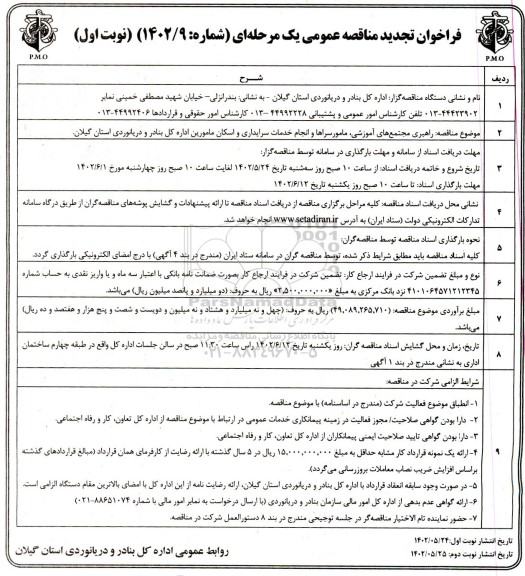 فراخوان تجدید مناقصه عمومی یک مرحله‌ای (شماره: ۱۴۰۲/۹) (نوبت اول)
P.M.O
P.M.O
ردیف
شرح
۱
نام و نشانی دستگاه مناقصه‌گزار: اداره کل بنادر و دریانوردی استان گیلان - به نشانی: بندرانزلی- خیابان شهید مصطفی خمینی نمابر
۴۴۴۲۳۹۰۲-۰۱۳ تلفن کارشناس امور عمومی و پشتیبانی ۴۴۹۹۲۲۲۸-۰۱۳ کارشناس امور حقوقی و قراردادها ۴۴۹۹۲۴۰۶-۰۱۳
۲
موضوع مناقصه: راهبری مجتمع‌های آموزشی، مامورسراها و انجام خدمات سرایداری و اسکان مامورین اداره کل بنادر و دریانوردی استان گیلان.
۳
مهلت دریافت اسناد از سامانه و مهلت بارگذاری در سامانه توسط مناقصه‌گران:
تاریخ شروع و خاتمه دریافت اسناد: از ساعت ۱۰ صبح روز سه‌شنبه تاریخ ۱۴۰۲/۵/۲۴ لغایت ساعت ۱۰ صبح روز چهارشنبه مورخ ۱۴۰۲/۶/۱
مهلت بارگذاری اسناد: تا ساعت ۱۰ صبح روز یکشنبه تاریخ ۱۴۰۲/۶/۱۲
۴
نشانی محل دریافت اسناد مناقصه: کلیه مراحل برگزاری مناقصه از دریافت اسناد مناقصه تا ارائه پیشنهادات و گشایش پوشه‌های مناقصه‌گران از طریق درگاه سامانه
تدارکات الکترونیکی دولت (ستاد ایران) به آدرس www.setadiran.ir انجام خواهد شد.
۵
نحوه بارگذاری اسناد مناقصه توسط مناقصه‌گران:
کلیه اسناد مناقصه باید مطابق شرایط ذکر شده، توسط مناقصه گران در سامانه ستاد ایران (مندرج در بند ۴ آگهی) با درج امضای الکترونیکی بارگذاری گردد.
۶
نوع و مبلغ تضمین شرکت در فرایند ارجاع کار: تضمین شرکت در فرایند ارجاع کار بصورت ضمانت نامه بانکی با اعتبار سه ماه و یا واریز نقدی به حساب شماره
۴۱۰۱۰۶۴۵۷۱۲۱۲۳۴۵ نزد بانک مرکزی به مبلغ «۲,۵۰۰,۰۰۰,۰۰۰» ریال به حروف: (دو میلیارد و پانصد میلیون ریال) می‌باشد.
۷
مبلغ برآوردی موضوع مناقصه: (۴۹,۰۸۹,۲۶۵,۷۱۰) ریال به حروف: (چهل و نه میلیارد و هشتاد و نه میلیون و دویست و شصت و پنج هزار و هفتصد و ده ریال)
می‌باشد.
۸
تاریخ، زمان و محل گشایش اسناد مناقصه گران: روز یکشنبه تاریخ ۱۴۰۲/۶/۱۲ راس ساعت ۱۱:۳۰ صبح در سالن جلسات اداره کل واقع در طبقه چهارم ساختمان
اداری به نشانی مندرج در بند ۱ آگهی
۹
شرایط الزامی شرکت در مناقصه:
۱- انطباق موضوع فعالیت شرکت (مندرج در اساسنامه) با موضوع مناقصه.
۲- دارا بودن گواهی صلاحیت/ مجوز فعالیت در زمینه پیمانکاری خدمات عمومی در ارتباط با موضوع مناقصه از اداره کل تعاون، کار و رفاه اجتماعی.
۳- دارا بودن گواهی تایید صلاحیت ایمنی پیمانکاران از اداره کل تعاون، کار و رفاه اجتماعی.
۴- ارائه یک نمونه قرارداد کار مشابه حداقل به مبلغ ۱۵,۰۰۰,۰۰۰,۰۰۰ ریال در ۵ سال گذشته با ارائه رضایت از کارفرمای همان قرارداد (مبالغ قراردادهای گذشته
براساس افزایش ضریب نصاب معاملات بروزرسانی می‌گردد).
۵- در صورت وجود سابقه انعقاد قرارداد با اداره کل بنادر و دریانوردی استان گیلان، ارائه رضایت نامه از این اداره کل با امضای بالاترین مقام دستگاه الزامی است.
۶- ارائه گواهی عدم بدهی از اداره کل امور مالی سازمان بنادر و دریانوردی (با ارسال درخواست به نمابر امور مالی با شماره ۸۸۶۵۱۰۷۴-۰۲۱)
۷- حضور نماینده تام الاختیار مناقصه‌گر در جلسه توجیهی مندرج در بند ۸ دستورالعمل شرکت در مناقصه.
تاریخ انتشار نوبت اول: ۱۴۰۲/۰۵/۲۴
تاریخ انتشار نوبت دوم: ۱۴۰۲/۰۵/۲۵
روابط عمومی اداره کل بنادر و دریانوردی استان گیلان
ParsNamadData
۰۲۱-۸۸۳۴۹۶۷۰-۵